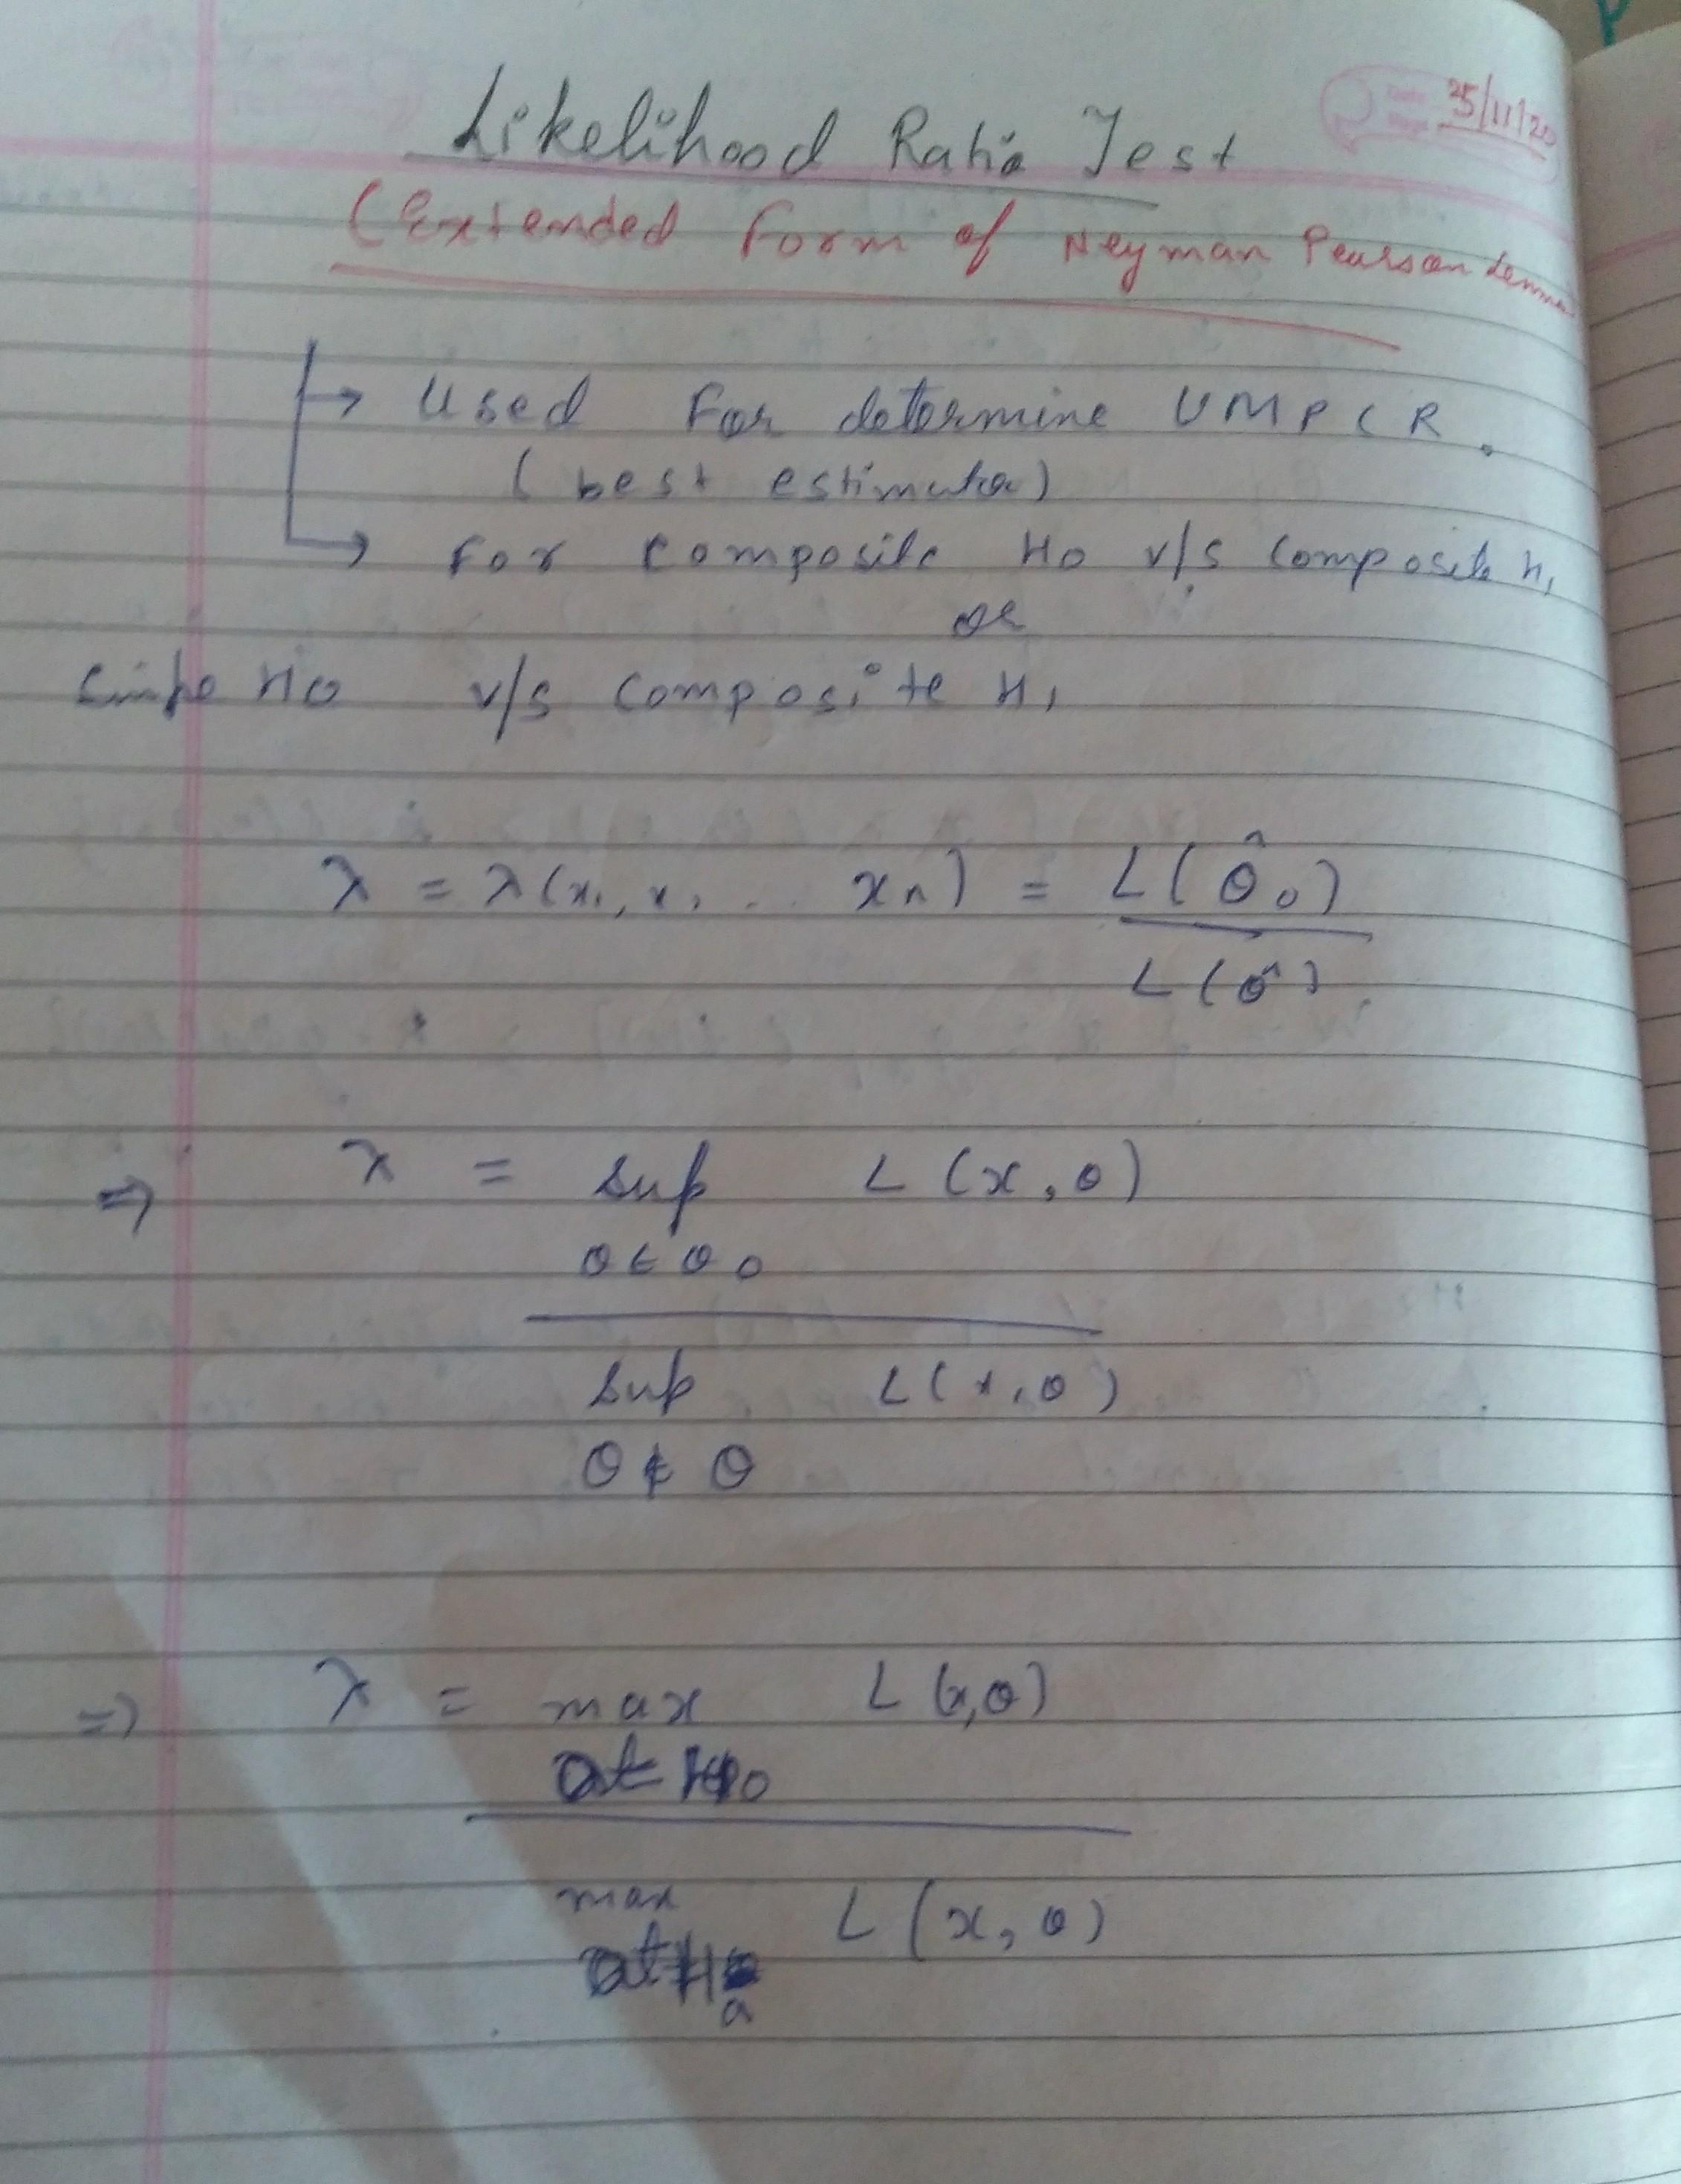 25/11/20
Likelihood Ratio Test
(Extended form of Neyman Pearson Lemma
→ Used for determine UMPCR.
(best estimator)
→ For Composite H0 v/s Composite H1
or
Simple H0 v/s Composite H1
λ = λ(x1, x2 ... xn) = L(θ̂0)
L(θ̂).
⇒ λ = Sup L(x, θ)
θ ∈ θ0
Sup L(x, θ)
θ ∉ θ
⇒ λ = max L(x,θ)
at H0
max L(x, θ)
at Ha